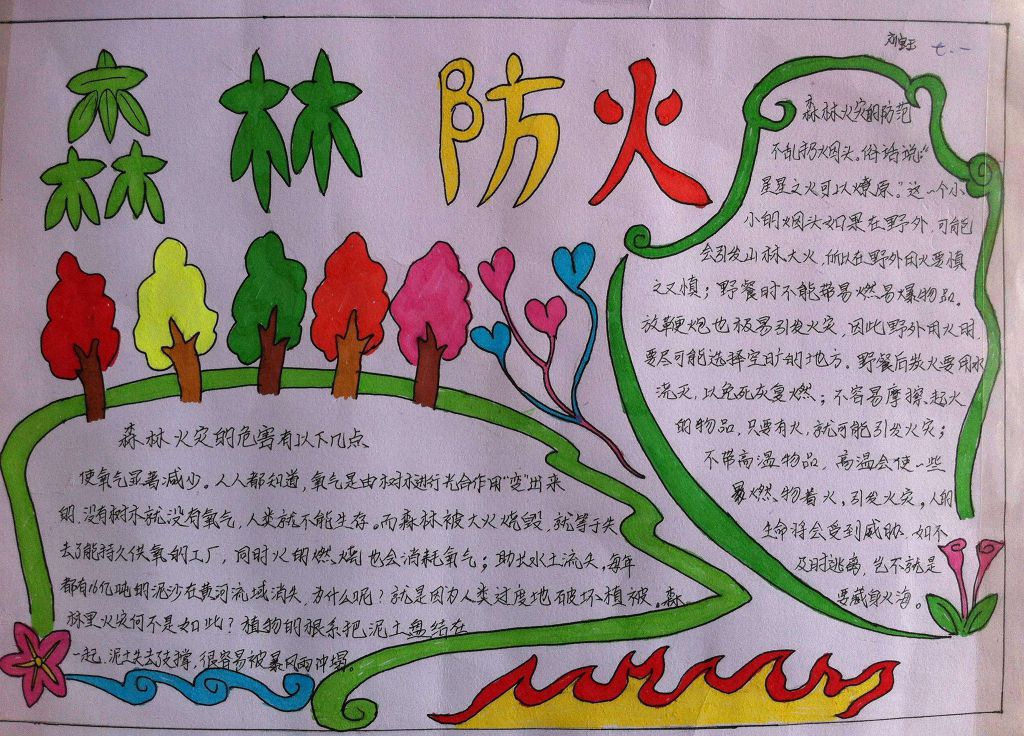 七.一
森林防火
森林火灾的危害有以下几点
使氧气显著减少。人人都知道,氧气是由树木进行光合作用“变”出来
的,没有树木就没有氧气,人类就不能生存。而森林被大火烧毁,就等于失
去了能持久供氧的工厂,同时火的燃烧也会消耗氧气;助长水土流失。每年
都有16亿吨的泥沙在黄河流域消失,为什么呢?就是因为人类过度地破坏植被。森
林里火灾何不是如此?植物的根系把泥土盘结在
一起,泥土失去支撑,很容易被暴风雨冲塌。
森林火灾的防范
不乱扔烟头。俗话说:“
星星之火可以燎原。”这一个小
小的烟头如果在野外,可能
会引发山林大火,所以在野外用火要慎
之又慎;野餐时不能带易燃易爆物品。
放鞭炮也极易引发火灾,因此野外用火时,
要尽可能选择空旷的地方。野餐后救火要用水
浇灭,以免死灰复燃;不容易摩擦起火
的物品,只要有火,就可能引发火灾;
不带高温物品,高温会使一些
易燃物着火,引发火灾。人的
生命将会受到威胁,如不
及时逃离,岂不就是
要葬身火海。